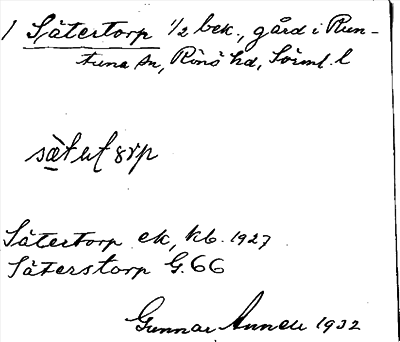 1 Sätertorp 1/2 bek., gård i Run-
tuna sn, Rönö hd, Sörml. l
Sätertorp ek, kb. 1927
Säterstorp G. 66
Gunnar Annell 1932